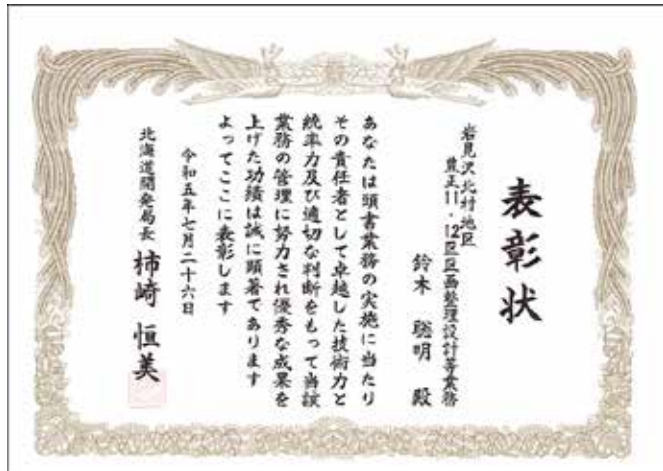 表彰状
岩見沢北村地区
豊正11・12区区画整理設計等業務
鈴木 聡明 殿
あなたは頭書業務の実施に当たり
その責任者として卓越した技術力と
統率力及び適切な判断をもって当該
業務の管理に努力され優秀な成果を
上げた功績は誠に顕著であります
よってここに表彰します
令和五年七月二十六日
北海道開発局長 柿崎 恒美